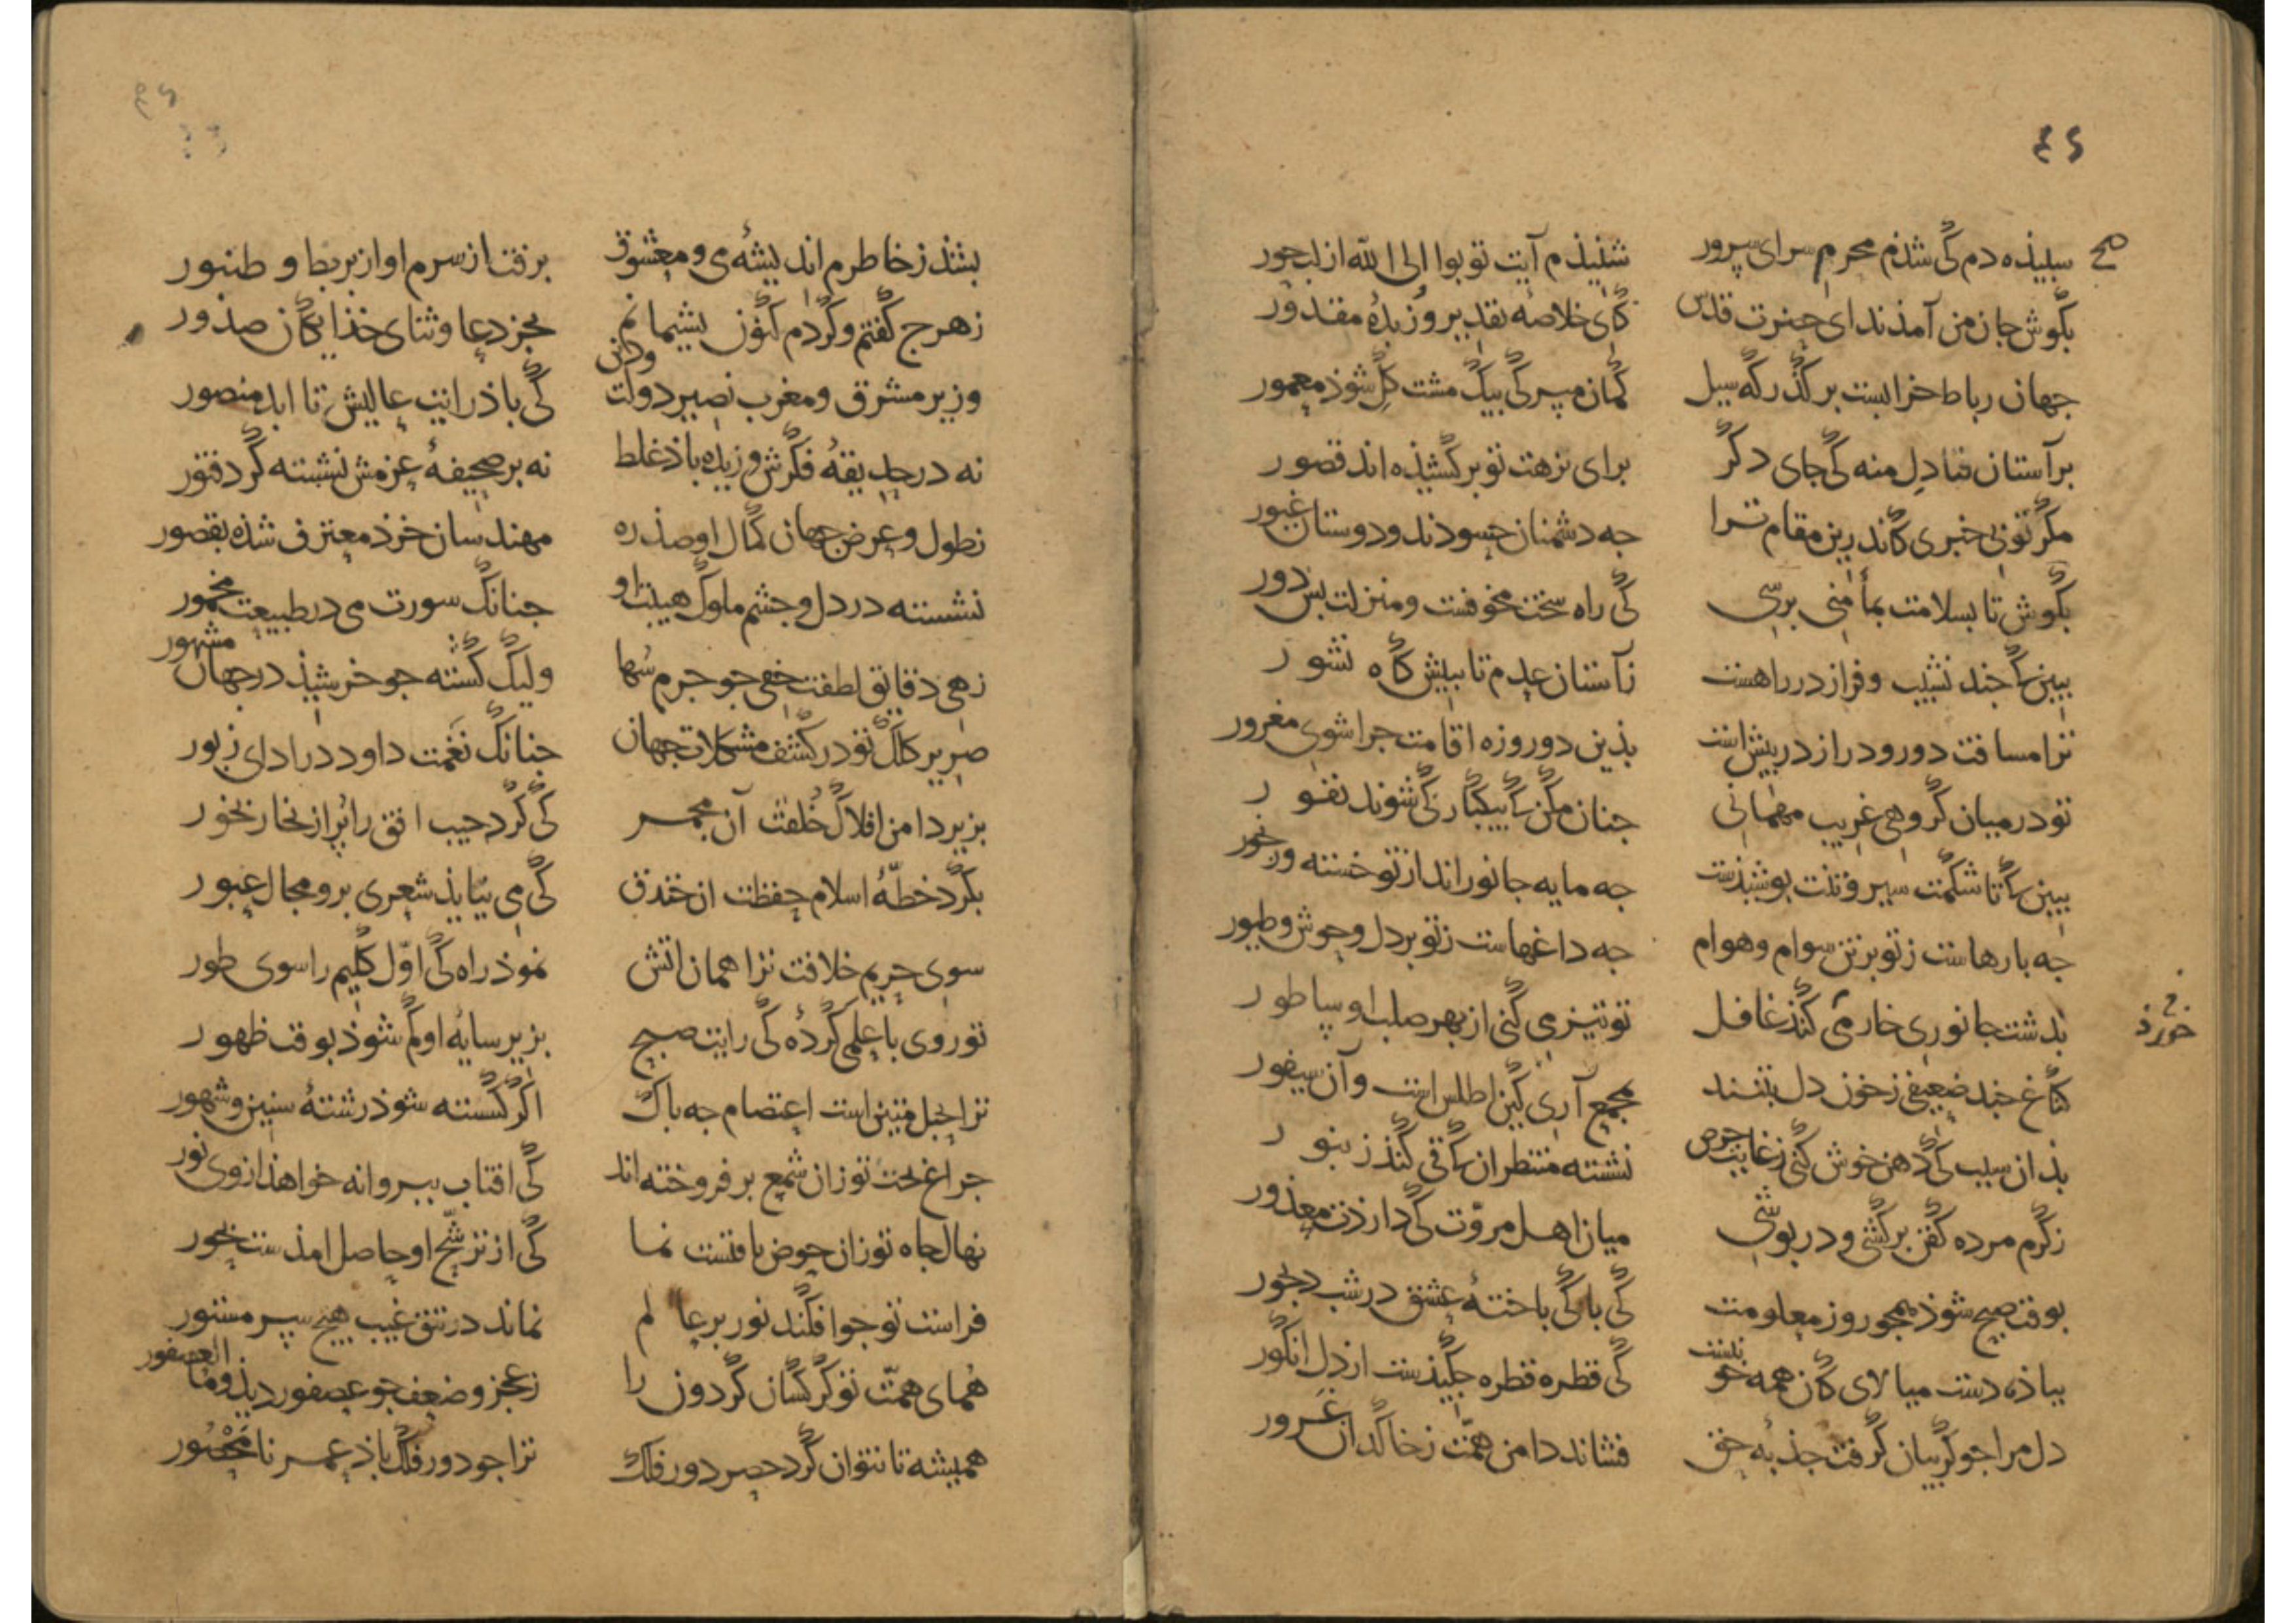 ٤٦
صح
سبیذه دم کی شذم محرم سرای سرور    شنیذم آیت توبوا الی الله از لب حور
بکوش جان من آمذ ندای حضرت قدس    کای خلاصهٔ تقدیر و زبدهٔ مقدور
جهان رباط خرابیست بر کذرکه سیل    کمان مبر کی بیک مشت کل شوذ معمور
بر آستان فنا دل منه کی جای دکر    برای نزهت تو برکشیذه‌اند قصور
مکر تو بی خبری کاندرین مقام ترا    جه دشمنان حسودند و دوستان غیور
بکوش تا بسلامت بمأمنی برسی    کی راه سخت مخوفست و منزلت بس دور
ببین کجند نشیب و فراز در راهست    ز آستان عدم تا ببیش کاه نشور
ترا مسافت دور و دراز در بیش است    بذین دو روزه اقامت جرا شوی مغرور
تو در میان کروهی غریب مهمانی    جنان مکن که بیکبار کی شوند نفور
ببین که تا شکمت سیر و تنت بوشیذست    جه مایه جانور اند از تو خسته و رنجور
جه بارهاست ز تو بر تن سوام و هوام    جه داغهاست ز تو بر دل وحوش و طیور
بدشت جانوری خار می کند غافل    تو تیز می کنی از بهر صلب او ساطور
خورذ
کناغ جند ضعیفی ز خون دل بتند    بجمع آری کین اطلس است و آن سیفور
بذان سبب کی دهن خوش کنی ز غایت حرص    نشسته منتظران که قی کند زنبور
ز کرم مرده کفن برکشی و دربوشی    میان اهل مروت کی دارذت معذور
بوقت صبح شوذ همجو روز معلومت    کی با کی باختهٔ عشق در شب دیجور
بباذه دست میالای کان همه خونیست    کی قطره قطره جکیذست از دل انکور
دل مرا جو کریبان کرفت جذبهٔ حق    فشاند دامن همت ز خاکدان غرور
بشذ ز خاطرم اندیشهٔ می و معشوق    برفت از سرم اواز بربط و طنبور
ز هرج کفتم و کردم کنون بشیمانم    بجز دعا و ثنای خذایکان صذور
وزیر مشرق و مغرب نصیر دولت و دین    کی باذ رایت عالیش تا ابد منصور
نه در حدیقهٔ فکرش وزیده باذ غلط    نه بر صحیفهٔ عزمش نشسته کرد فتور
ز طول و عرض جهان کمال او صذ ره    مهندسان خرد معترف شذه بقصور
نشسته در دل و جشم ملوک هیبت او    جنانک سورت می در طبیعت مخمور
زهی دقایق لطفت خفی جو جرم سها    ولیک کشته جو خرشیذ در جهان مشهور
صریر کلک تو در کشف مشکلات جهان    جنانک نغمت داود در ادای زبور
بزیر دامن افلاک خلقت آن مجمر    کی کرد جیب افق را بر از بخار بخور
بکرد خطهٔ اسلام حفظت ان خندق    کی می نیابذ شعری برو مجال عبور
سوی حریم خلافت ترا همان اتش    نموذ راه کی اول کلیم را سوی طور
تو روی با علمی کردهٔ کی رایت صبح    بزیر سایهٔ او کم شوذ بوقت ظهور
ترا بحبل متین است اعتصام جه باک    اکر کسسته شوذ رشتهٔ سنین و شهور
جراغ بخت تو زان شمع بر فروخته‌اند    کی افتاب ببروانه خواهذ از وی نور
نهال جاه تو زان حوض یافتست نما    کی از ترشح او حاصل امذست بحور
فراست تو جو افکند نور بر عالم    نماند در تتق غیب هیج سر مستور
همای همت تو کرکسان کردون را    ز عجز و ضعف جو عصفور دید و ما العصفور
همیشه تا نتوان کرد حصر دور فلک    ترا جو دور فلک باذ عمر نامحصور